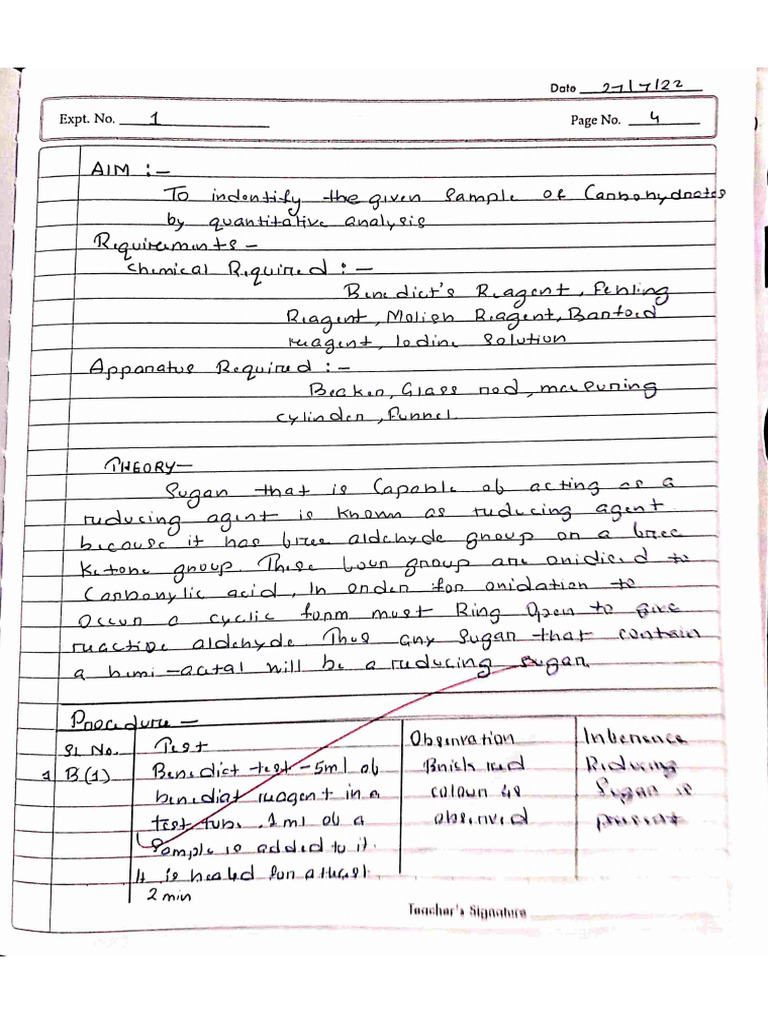 Date 27/7/22
Expt. No. 1
Page No. 4
AIM :-
To indentify the given sample of Carbohydrates
by quantitative analysis
Requirements -
Chemical Required :-
Benedict's Reagent, Fehling
Reagent, Molish Reagent, Barfoid
reagent, Iodine solution
Apparatus Required :-
Beaker, Glass rod, measuring
cylinder, Funnel
THEORY-
Sugar that is Capable of acting as a
reducing agent is known as reducing agent
because it has free aldehyde group or a free
Ketone group. These four group are oxidised to
Carboxylic acid, In order for oxidation to
occur a cyclic form must Ring Open to give
reactive aldehyde. Thus any sugar that contain
a hemi-acetal will be a reducing sugar.
Procedure -
Sl No. Test Observation Inference
1 B(1) Benedict test - 5ml of Brick red Reducing
benediat reagent in a colour is Sugar is
test tube. 1 ml of a observed present
Sample is added to it.
It is heated for atleast
2 min
Teacher's Signature